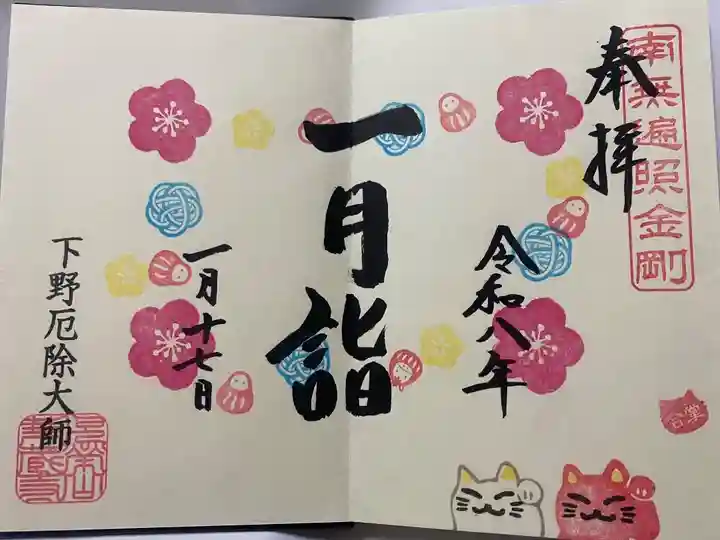 南無遍照金剛
奉拝
令和八年
一月詣
一月十七日
下野厄除大師
合掌